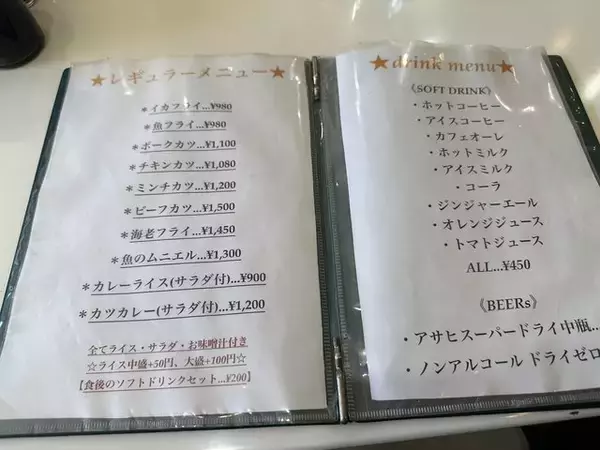 ★レギュラーメニュー★
＊イカフライ...¥980
＊魚フライ...¥980
＊ポークカツ...¥1,100
＊チキンカツ...¥1,080
＊ミンチカツ...¥1,200
＊ビーフカツ...¥1,500
＊海老フライ...¥1,450
＊魚のムニエル...¥1,300
＊カレーライス(サラダ付)...¥900
＊カツカレー(サラダ付)...¥1,200
全てライス・サラダ・お味噌汁付き
☆ライス中盛+50円、大盛+100円☆
【食後のソフトドリンクセット...¥200】
★drink menu★
《SOFT DRINK》
・ホットコーヒー
・アイスコーヒー
・カフェオーレ
・ホットミルク
・アイスミルク
・コーラ
・ジンジャーエール
・オレンジジュース
・トマトジュース
ALL...¥450
《BEERs》
・アサヒスーパードライ中瓶...
・ノンアルコール ドライゼロ